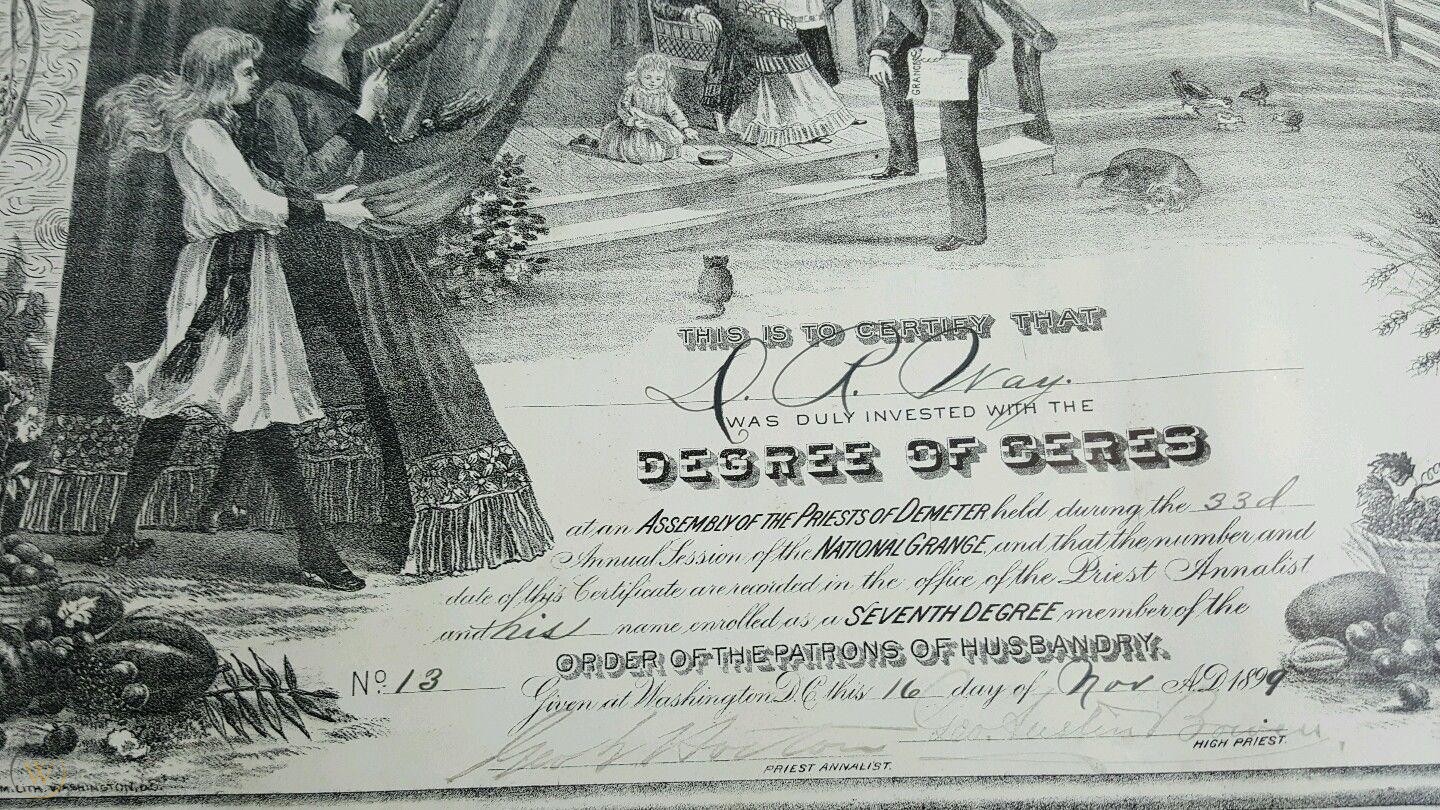 GRANGE
THIS IS TO CERTIFY THAT
D. R. Way.
WAS DULY INVESTED WITH THE
DEGREE OF CERES
at an ASSEMBLY OF THE PRIESTS OF DEMETER held during the 33d
Annual Session of the NATIONAL GRANGE, and that the number and
date of this Certificate are recorded in the office of the Priest Annalist
and his name enrolled as a SEVENTH DEGREE member of the
ORDER OF THE PATRONS OF HUSBANDRY.
No 13
Given at Washington, D.C. this 16 day of Nov A.D. 1899
Geo. Austin Bowen
HIGH PRIEST.
Horton
PRIEST ANNALIST.
LITH. WASHINGTON, D.C.